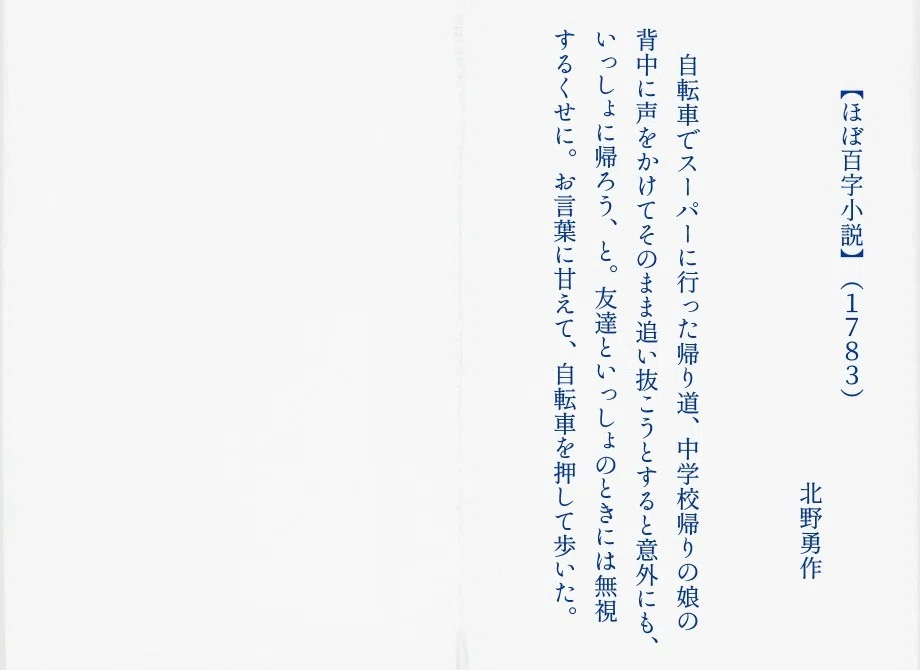 【ほぼ百字小説】（1783）
北野勇作
自転車でスーパーに行った帰り道、中学校帰りの娘の
背中に声をかけてそのまま追い抜こうとすると意外にも、
いっしょに帰ろう、と。友達といっしょのときには無視
するくせに。お言葉に甘えて、自転車を押して歩いた。